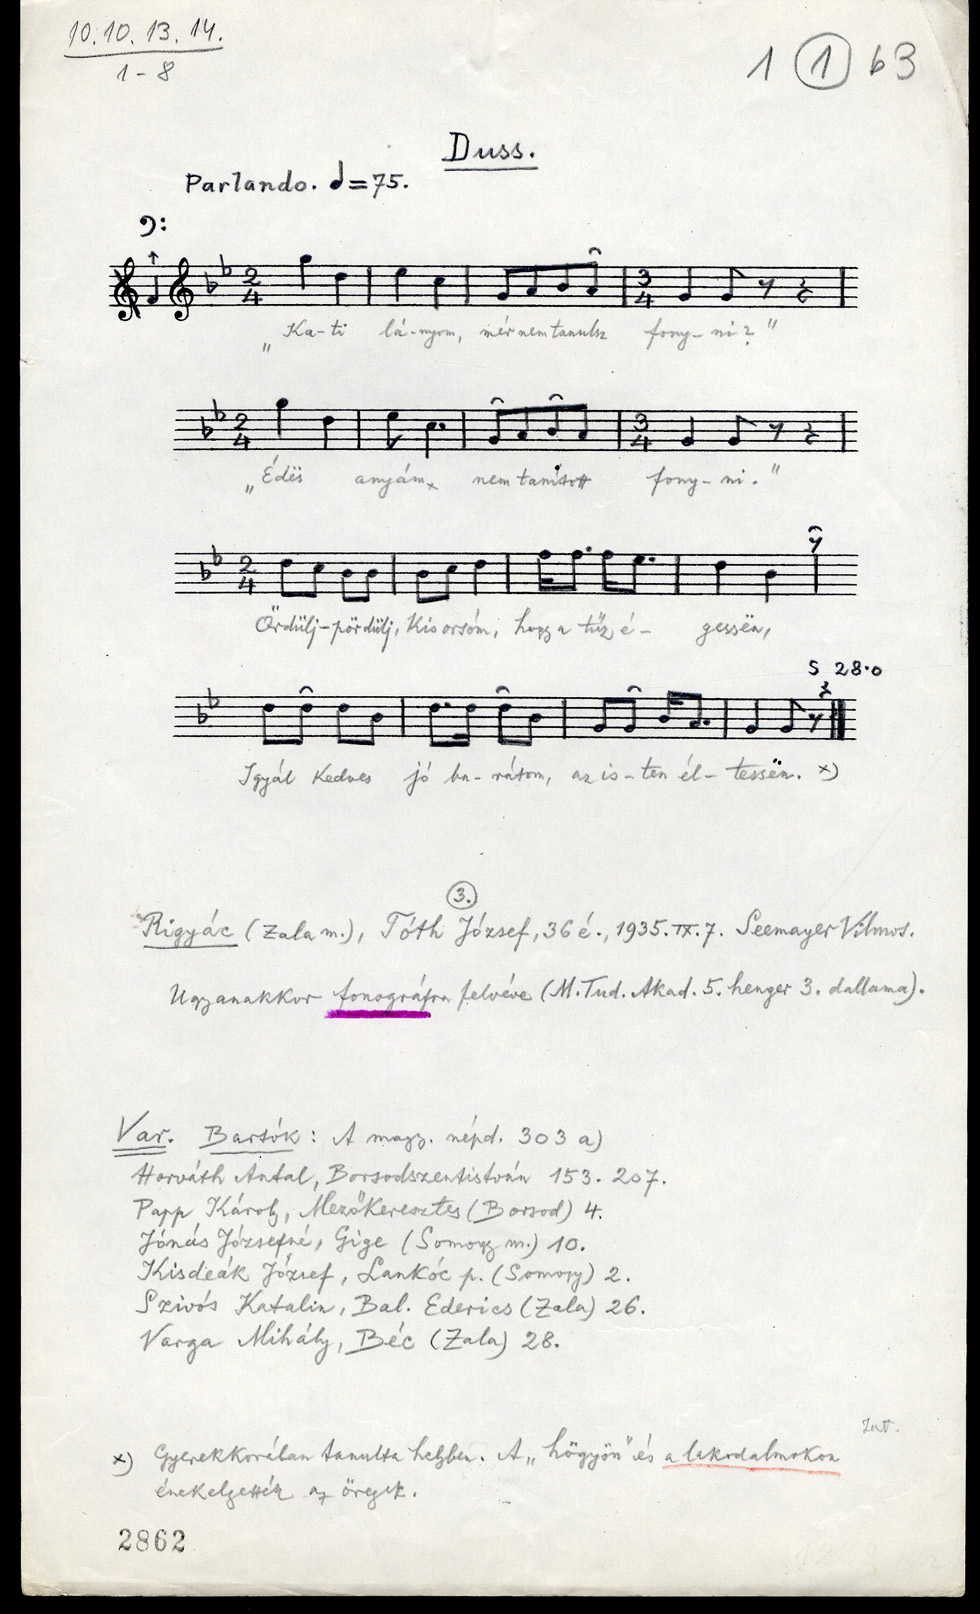 10. 10. 13. 14.
1 - 8
1 ① b3
Duss.
Parlando. ♩=75.
2 4 3 4
„Ka-ti lá-nyom, mér nem tanulsz fony-ni?"
2 4 3 4
„Édës anyám x nem tanított fony-ni."
2 4
Ördülj-pördülj, Kis orsóm, hogy a tűz é- gessën,
S 28.0
Igyál Kedves jó ba-rátom, az is-ten él-tessën. x)
③.
Rigyác (Zala m.), Tóth József, 36 é., 1935. IX. 7. Seemayer Vilmos.
Ugyanakkor fonográfra felvéve (M. Tud. Akad. 5. henger 3. dallama).
Var. Bartók: A magy. népd. 303 a)
Horváth Antal, Borsodszentistván 153. 207.
Papp Károly, Mezőkeresztes (Borsod) 4.
Jónás Józsefné, Gige (Somogy m.) 10.
Kisdeák József, Lankóc p. (Somogy) 2.
Szivós Katalin, Bal. Ederics (Zala) 26.
Varga Mihály, Béc (Zala) 28.
x) Gyerekkorában tanulta helyben. A „högyön" és a lakodalmokon
énekelgették az öregek.
2862